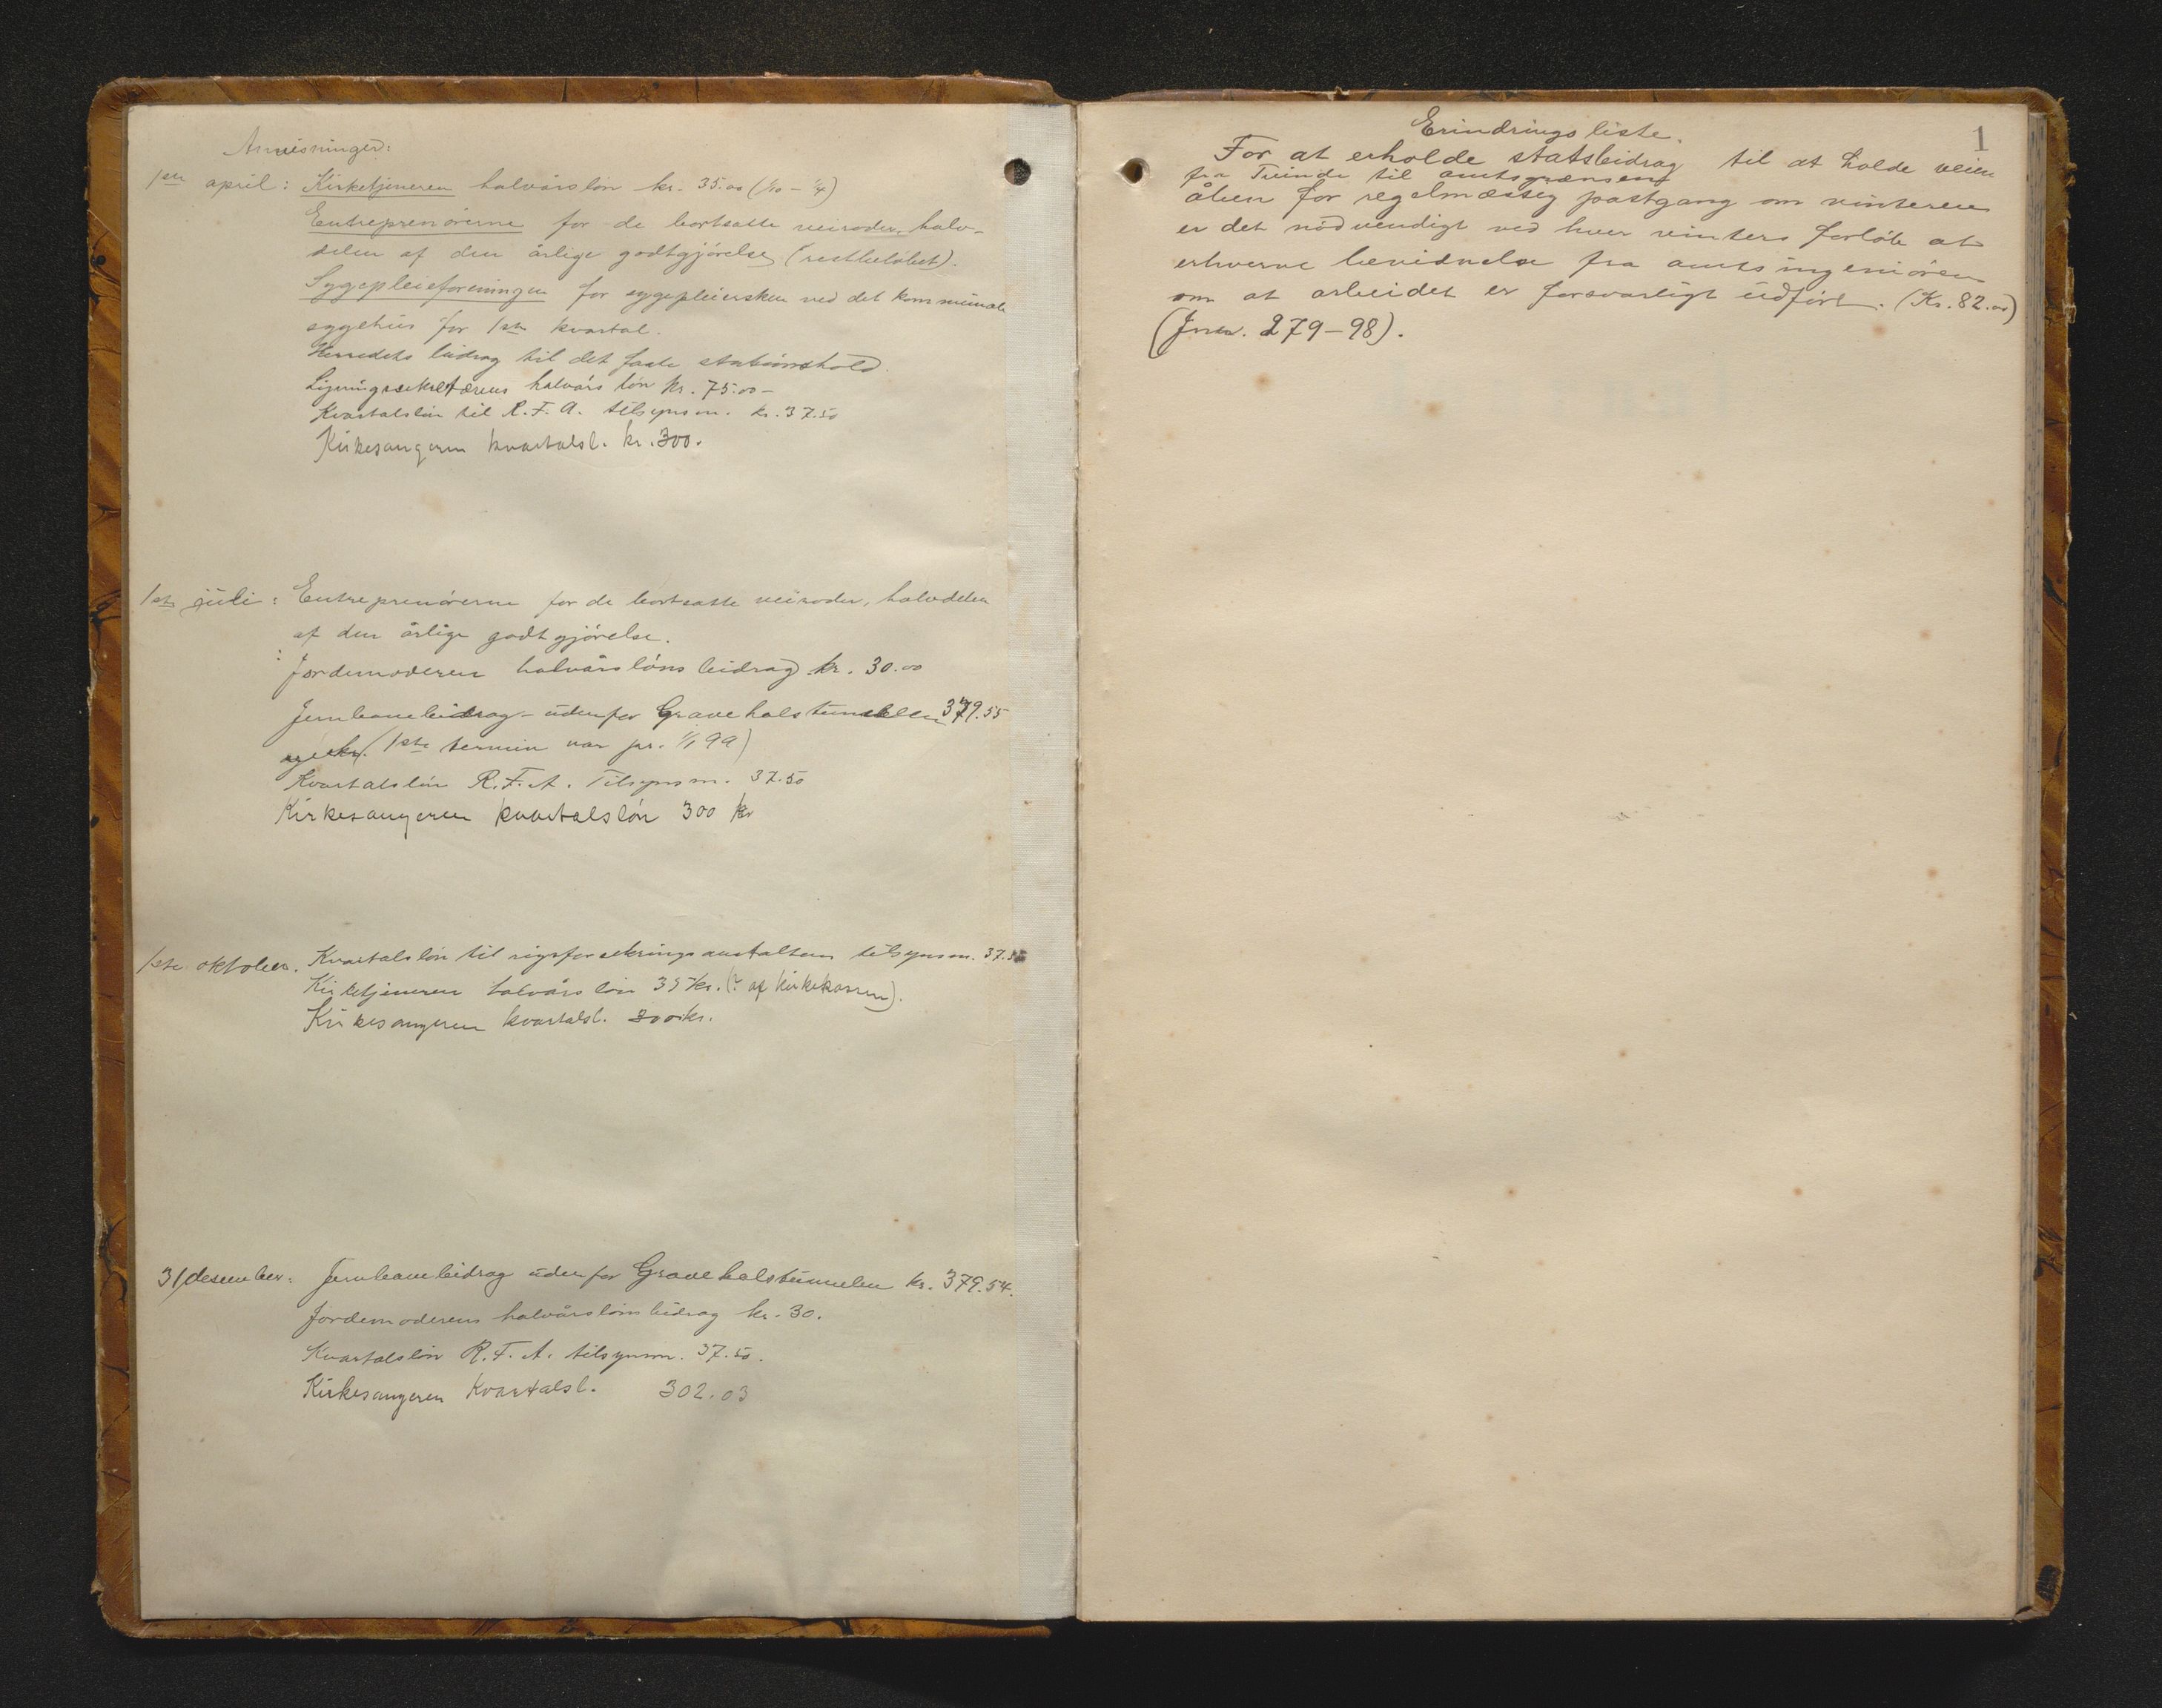 Anvisninger:
1ste april: Kirketjeneren halvårsløn kr. 35.00 (1/10 – 1/4)
Entreprenørerne for de bortsatte veiroder, halv-
delen af den årlige godtgjørelse (restbeløbet).
Sygepleieforeningen for sygepleiersken ved det kommunale
sygehus for 1ste kvartal.
Herredets bidrag til det faste stationshold.
Ligningssekretærens halvårs løn kr. 75.00 –
Kvartalsløn til R.F.A. tilsynsm. kr. 37.50
Kirkesangeren kvartalsl. kr. 300.
1ste juli: Entreprenørerne for de bortsatte veiroder, halvdelen
af den årlige godtgjørelse.
: Jordemoderen halvårsløns bidrag kr. 30.00
Jernbanebidrag – udenfor Gravehalstunnelen 379.55
(1ste termin var pr. 1/1 99)
Kvartalsløn R.F.A. Tilsynsm. 37.50
Kirkesangeren kvartalsløn 300 kr
1ste oktober. Kvartalsløn til rigsforsekringsanstaltens tilsynsm. 37.50
Kirketjeneren halvårsløn 35 kr. (? af kirkekassen).
Kirkesangeren kvartalsl. 300 kr.
31/desember: Jernbanebidrag udenfor Gravehalstunnelen kr. 379.54.
Jordemoderens halvårslønsbidrag kr. 30.
Kvartalsløn R.F.A. tilsynsm. 37.50.
Kirkesangeren Kvartalsl. 302.03
1
Erindringsliste.
For at erholde statsbidrag til at holde veien
fra Tvinde til amtsgrænsen
åben for regelmæssig postgang om vinteren
er det nødvendigt ved hver vinters forløb at
erhverve bevidnelse fra amtsingeniøren
om at arbeidet er forsvarligt udført. (Kr. 82.00)
(Jnr. 279–98).